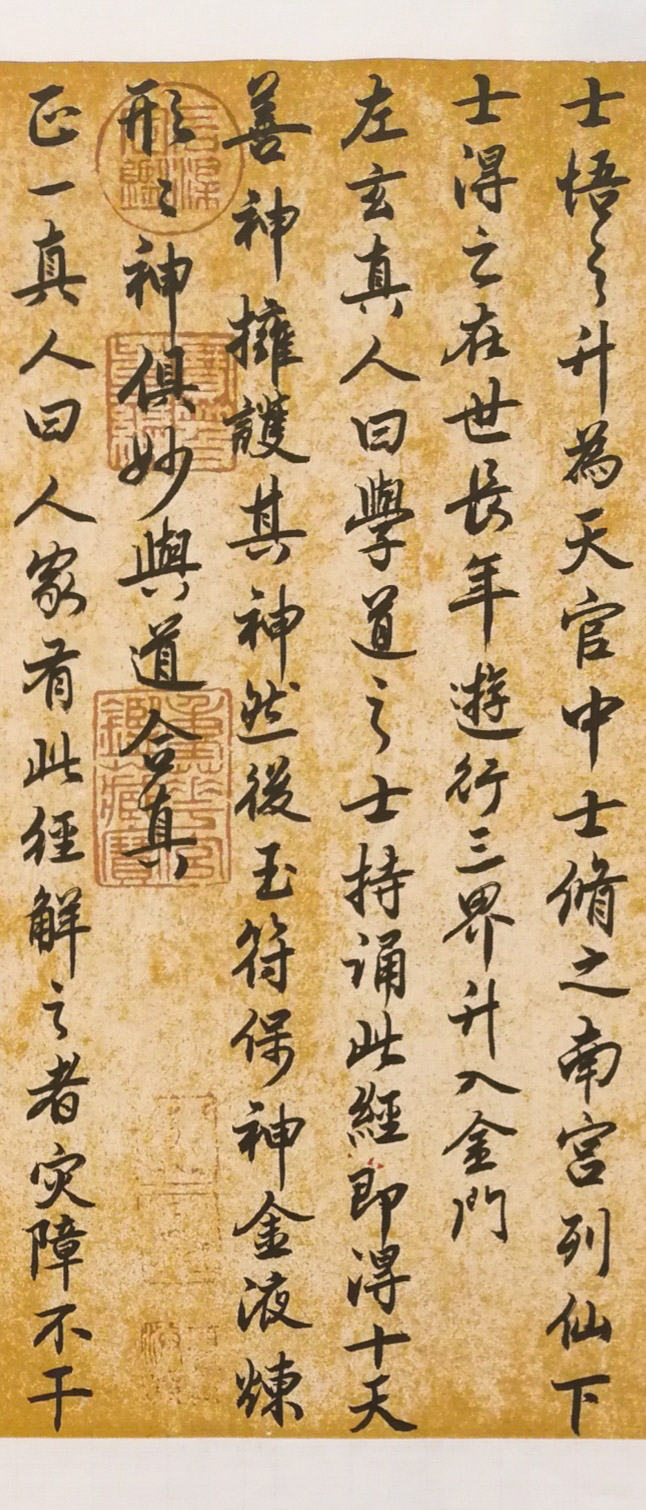 士悟之升為天官中士脩之南宮列仙下
士得之在世長年遊行三界升入金門
左玄真人曰學道之士持誦此經即得十天
善神擁護其神然後玉符保神金液煉
形〻神俱妙與道合真
正一真人曰人家有此經解之者灾障不干